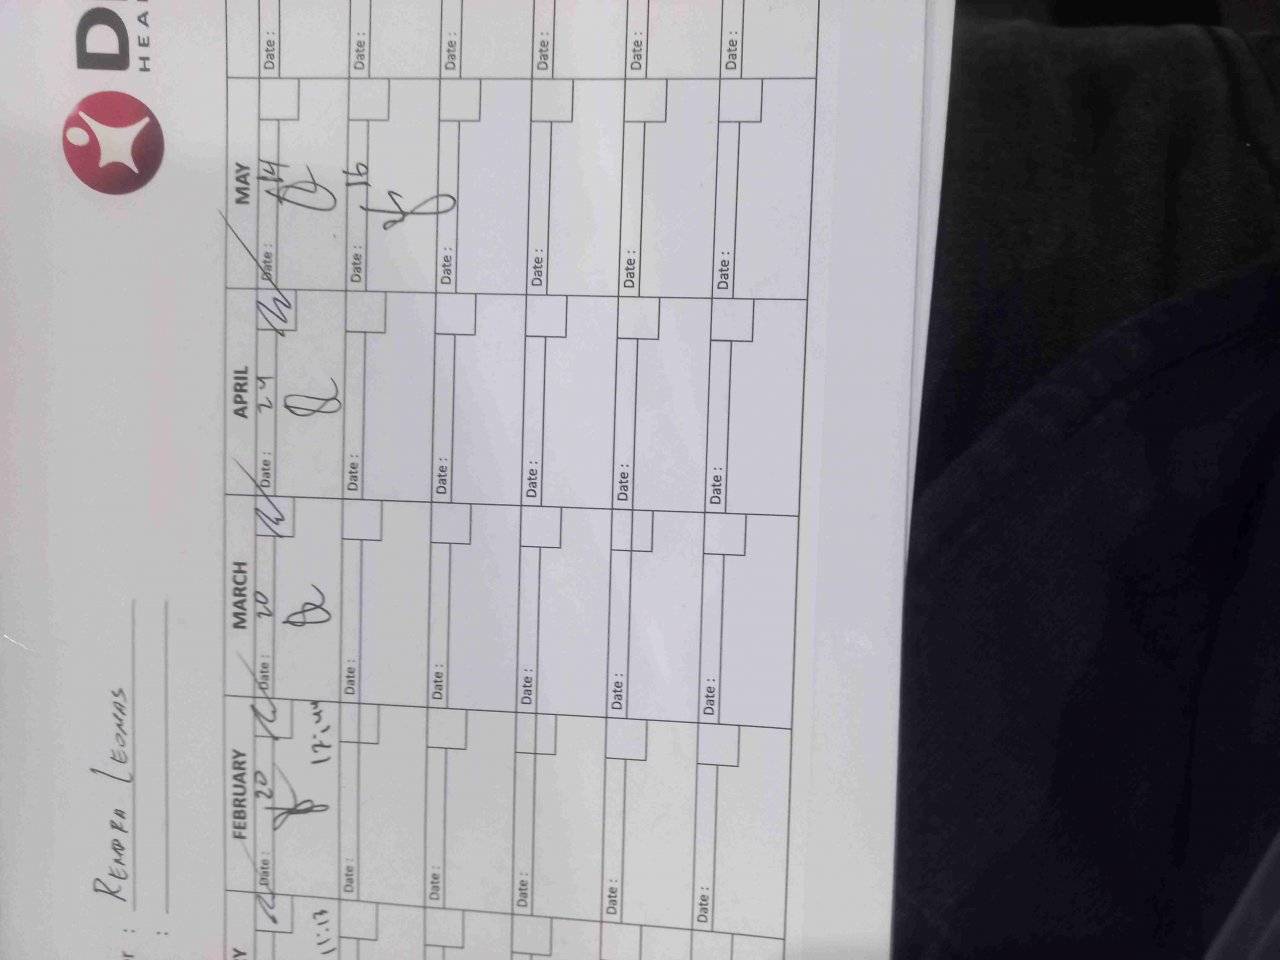 D
HEA
: RENDRA LEONAS
:
FEBRUARY MARCH APRIL MAY
Date : 20 Date : 20 Date : 29 Date : 14 Date :
11:13 17:44
Date : Date : Date : Date : 16 Date :
Date : Date : Date : Date : Date :
Date : Date : Date : Date : Date :
Date : Date : Date : Date : Date :
Date : Date : Date : Date : Date :